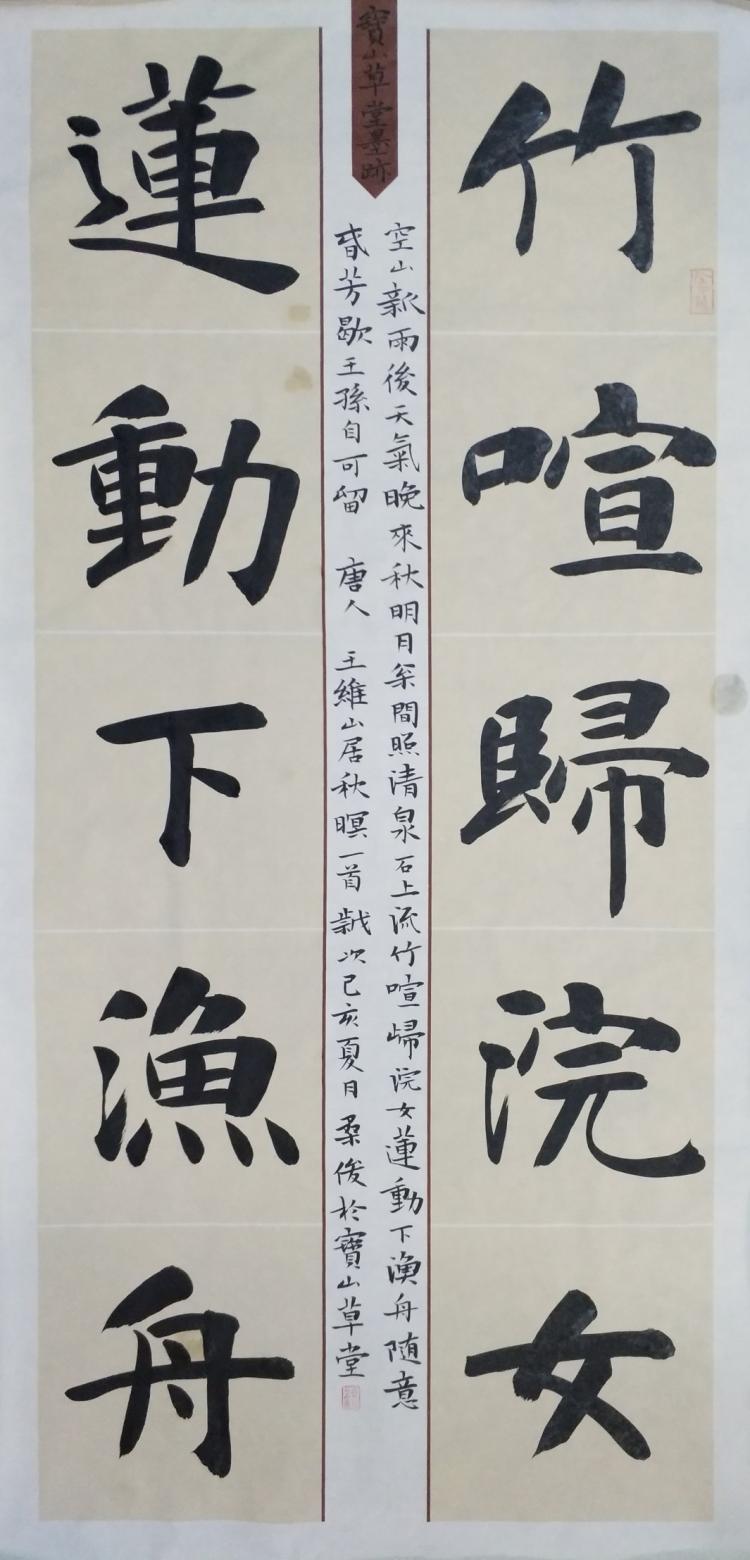 竹喧歸浣女
寶山草堂墨跡
空山新雨後天氣晚來秋明月枀間照清泉石上流竹喧歸浣女蓮動下漁舟随意
旾芳歇王孫自可留 唐人 王維山居秋暝一首 歲次己亥夏月柔俊於寶山草堂
蓮動下漁舟